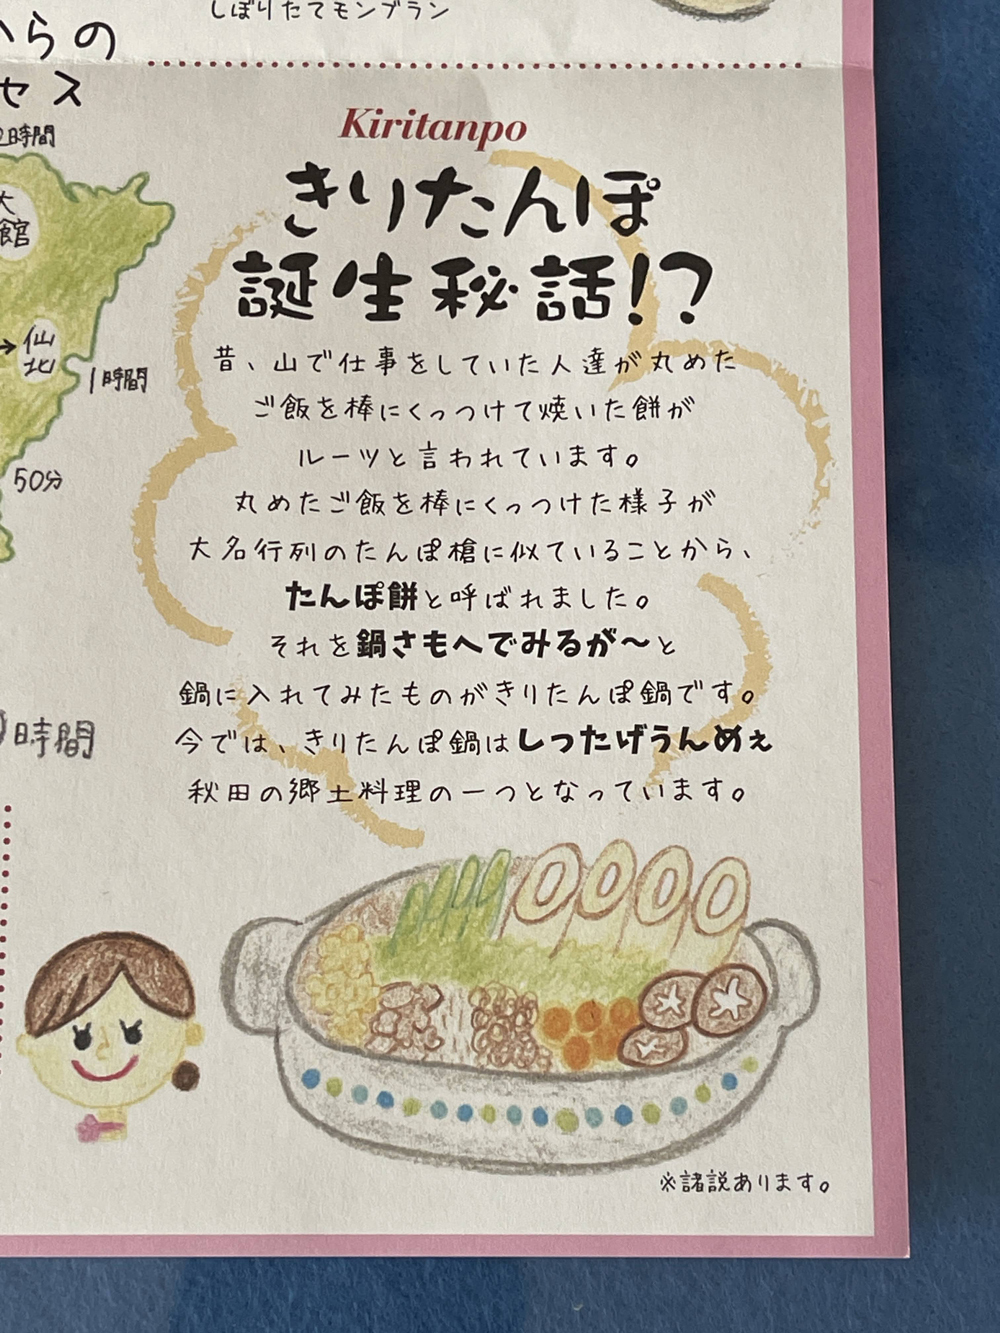 しぼりたてモンブラン
らの
セス
時間
大館
→仙北
1時間
50分
時間
Kiritanpo
きりたんぽ
誕生秘話!?
昔、山で仕事をしていた人達が丸めた
ご飯を棒にくっつけて焼いた餅が
ルーツと言われています。
丸めたご飯を棒にくっつけた様子が
大名行列のたんぽ槍に似ていることから、
たんぽ餅と呼ばれました。
それを鍋さもへでみるが〜と
鍋に入れてみたものがきりたんぽ鍋です。
今では、きりたんぽ鍋はしったげうんめぇ
秋田の郷土料理の一つとなっています。
※諸説あります。